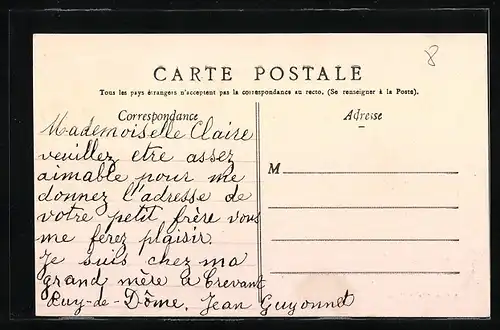 8
CARTE POSTALE
Tous les pays étrangers n'acceptent pas la correspondance au recto. (Se renseigner à la Poste).
Correspondance
Adresse
Mademoiselle Claire
veuillez etre assez
aimable pour me
donnez l'adresse de
votre petit frère vous
me ferez plaisir.
Je suis chez ma
grand mère a Crevant
Puy-de-Dôme. Jean Guyonnet
M